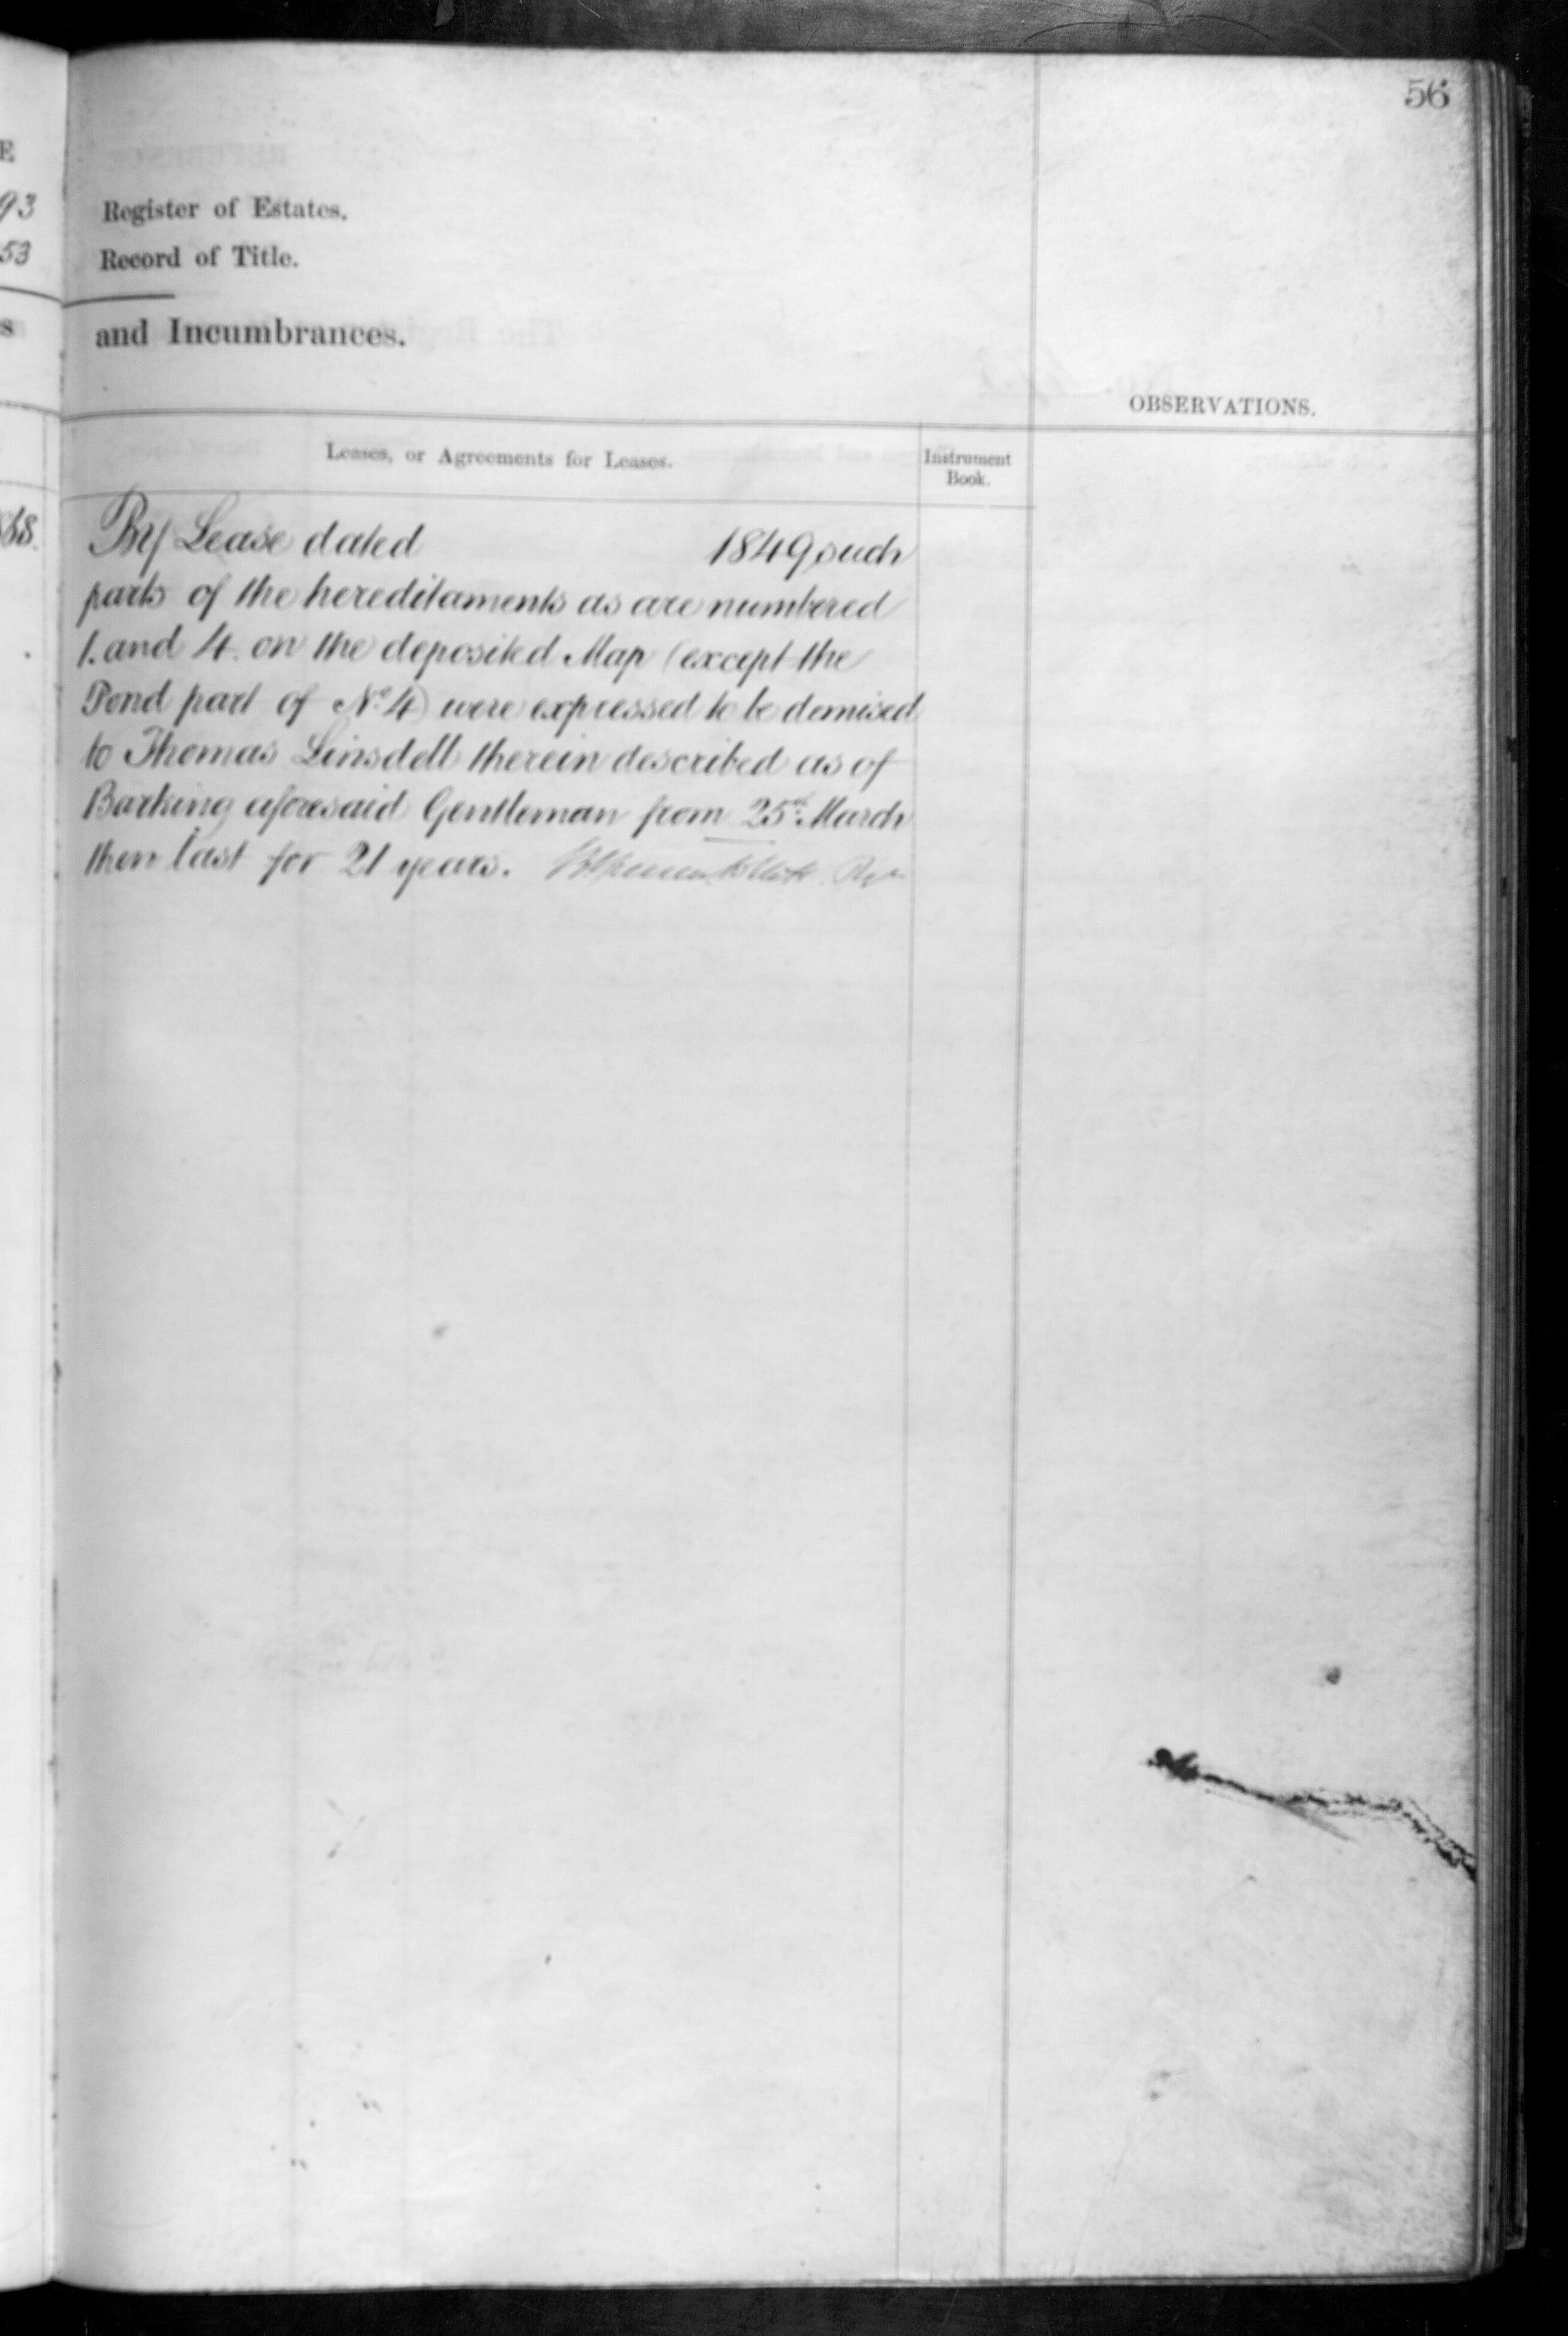 56
E
93
53
s
68.
Register of Estates.
Record of Title.
and Incumbrances.
OBSERVATIONS.
Leases, or Agreements for Leases.
Instrument
Book.
By Lease dated 1849 such
parts of the hereditaments as are numbered
1. and 4. on the deposited Map (except the
Pond part of No. 4) were expressed to be demised
to Thomas Linsdell therein described as of
Barking aforesaid Gentleman from 25th March
then last for 21 years.